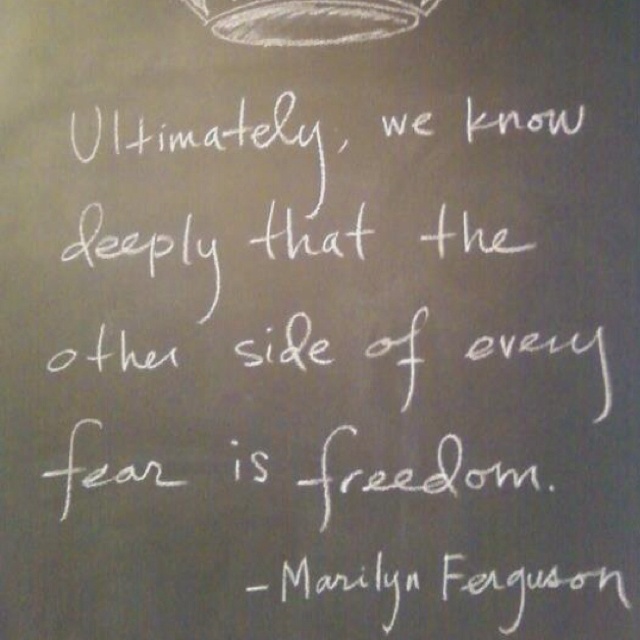 Ultimately, we know
deeply that the
other side of every
fear is freedom.
- Marilyn Ferguson